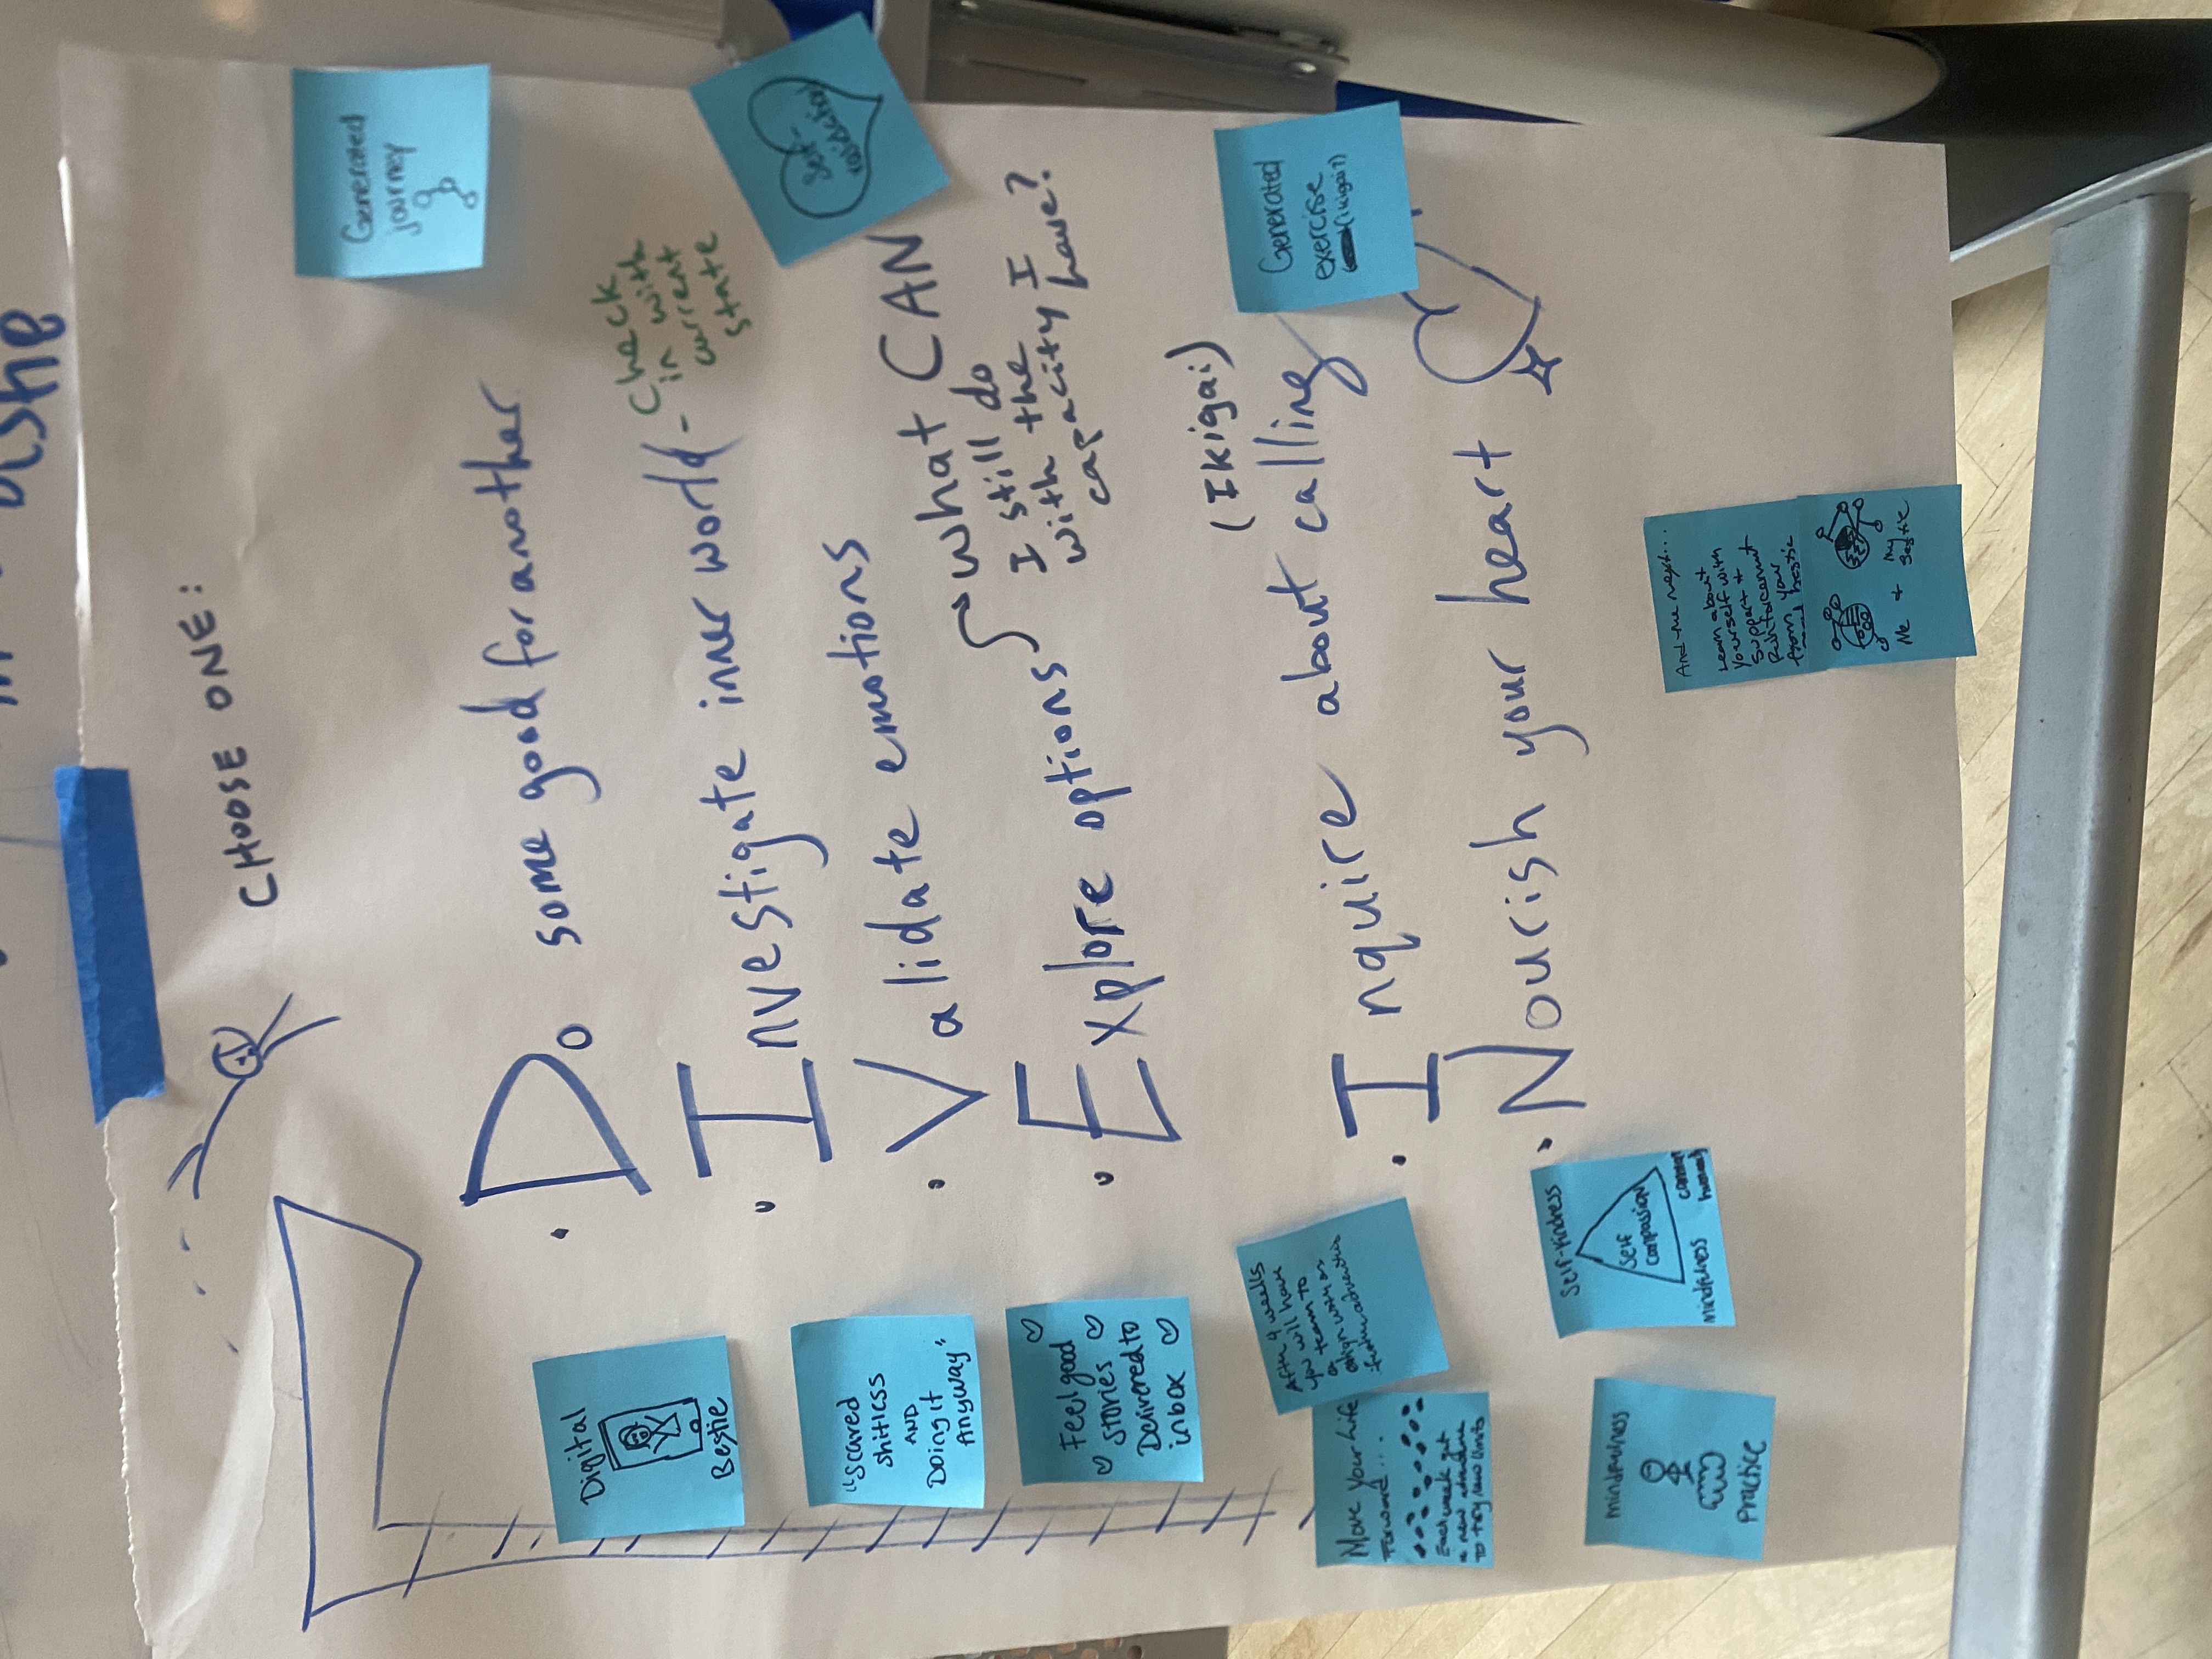 CHOOSE ONE:
Generated
journey
Do some good for another
Investigate inner world -
Check
in with
current
state
Self-
Validate emotions
Explore options
What CAN
I still do
with the
capacity I
have?
(Ikigai)
Inquire about calling
Generated
exercise
(ikigai)
Nourish your heart
Digital
Bestie
"Scared
shitless
AND
Doing it
Anyway"
Feel good
stories
Delivered to
inbox
After 9 weeks
you will have
a team to
align with on
future adventures
Move your life
Forward...
Each week get
a new adventure
to try new limits
Self-kindness
Self
compassion
mindfulness
common
humanity
mindfulness
Practice
And the next...
Learn about
yourself with
support +
Reinforcement
from your
bestie
Me + My
Bestie